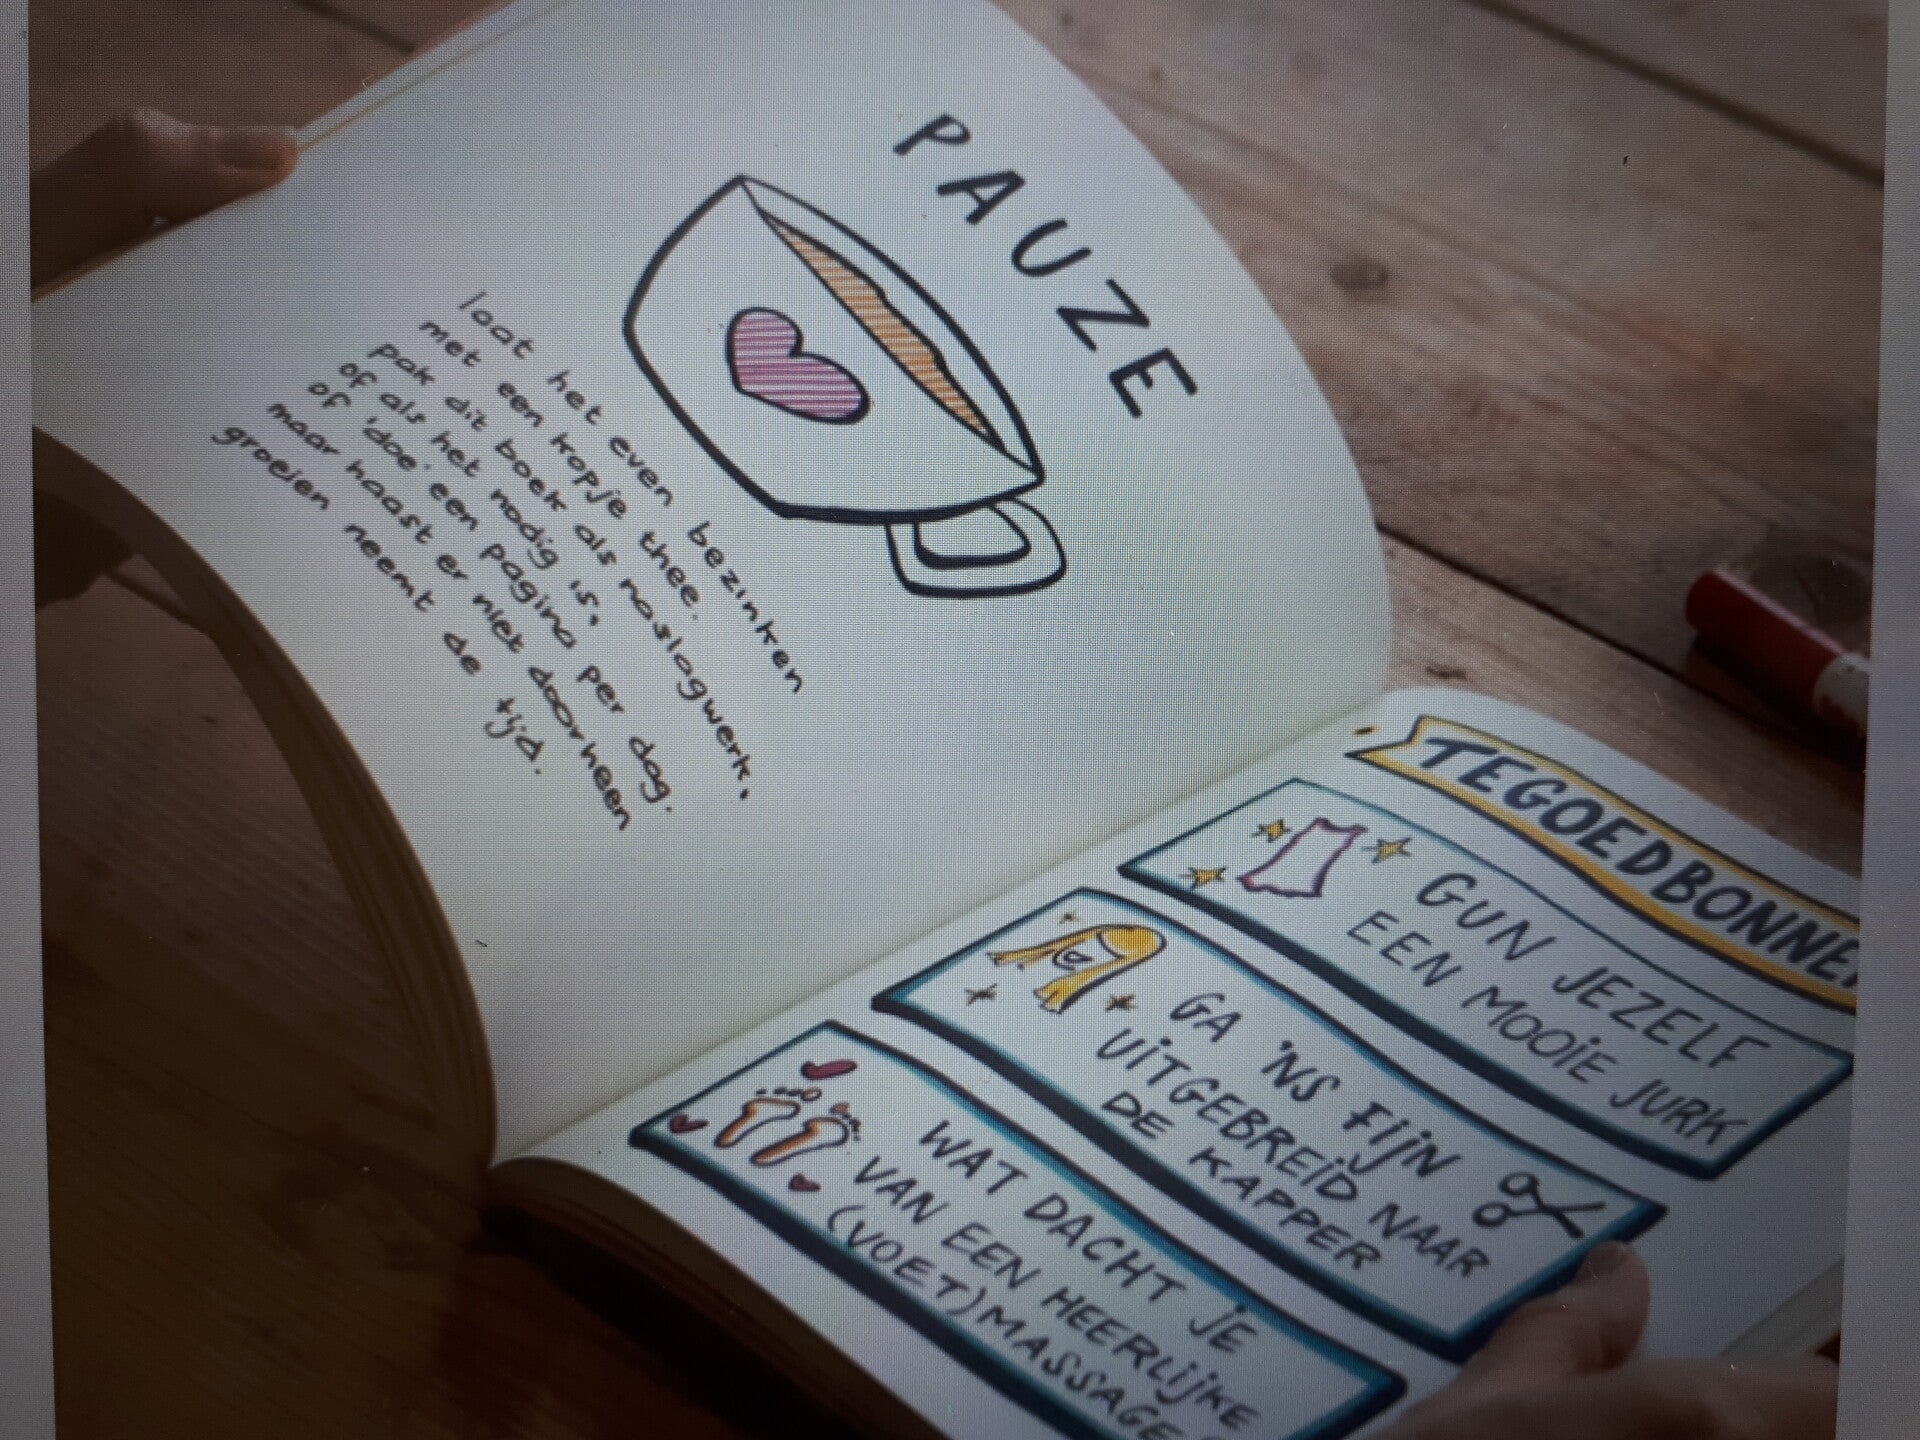 PAUZE
laat het even bezinken
met een kopje thee.
pak dit boek als naslagwerk,
of als het nodig is,
of 'doe' een pagina per dag.
maar haast er niet doorheen
groeien neemt de tijd.
TEGOEDBONNEN
GUN JEZELF
EEN MOOIE JURK
GA 'NS FIJN
UITGEBREID NAAR
DE KAPPER
WAT DACHT JE
VAN EEN HEERLIJKE
(VOET)MASSAGE